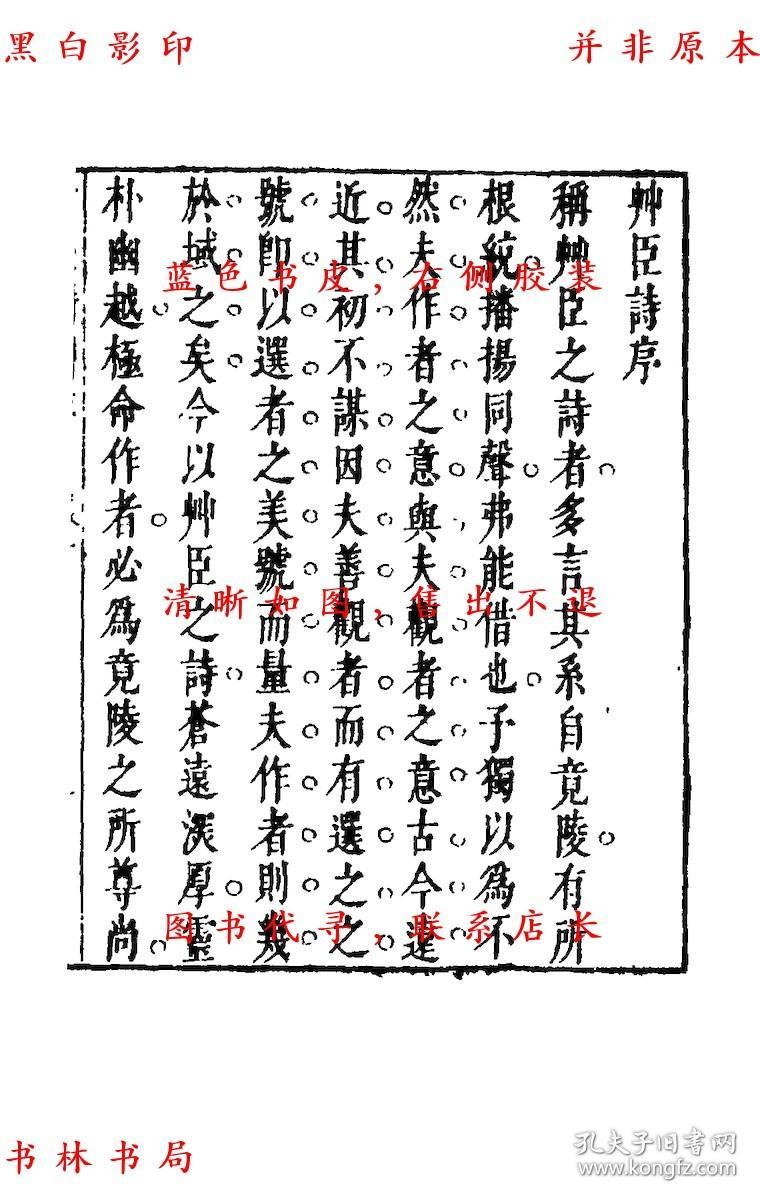 黑白影印
并非原本
艸臣詩序
稱艸臣之詩者多言其系自竟陵有所
根統播揚同聲弗能借也予獨以為不
然夫作者之意與夫觀者之意古今遞
近其初不謀因夫善觀者而有選之之
號即以選者之美號而量夫作者則幾
於域之矣今以艸臣之詩蒼遠深厚靈
朴幽越極命作者必為竟陵之所尊尚
蓝色书皮,右侧胶装
清晰如图,售出不退
图书代寻,联系店长
书林书局
孔夫子旧书网
www.kongfz.com